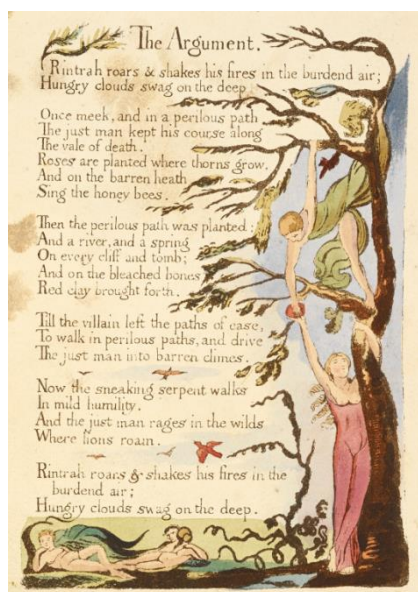 The Argument.
Rintrah roars & shakes his fires in the burdend air;
Hungry clouds swag on the deep
Once meek, and in a perilous path
The just man kept his course along
The vale of death.
Roses are planted where thorns grow.
And on the barren heath
Sing the honey bees.
Then the perilous path was planted:
And a river, and a spring
On every cliff and tomb;
And on the bleached bones
Red clay brought forth.
Till the villain left the paths of ease,
To walk in perilous paths, and drive
The just man into barren climes.
Now the sneaking serpent walks
In mild humility.
And the just man rages in the wilds
Where lions roam.
Rintrah roars & shakes his fires in the
burdend air;
Hungry clouds swag on the deep.